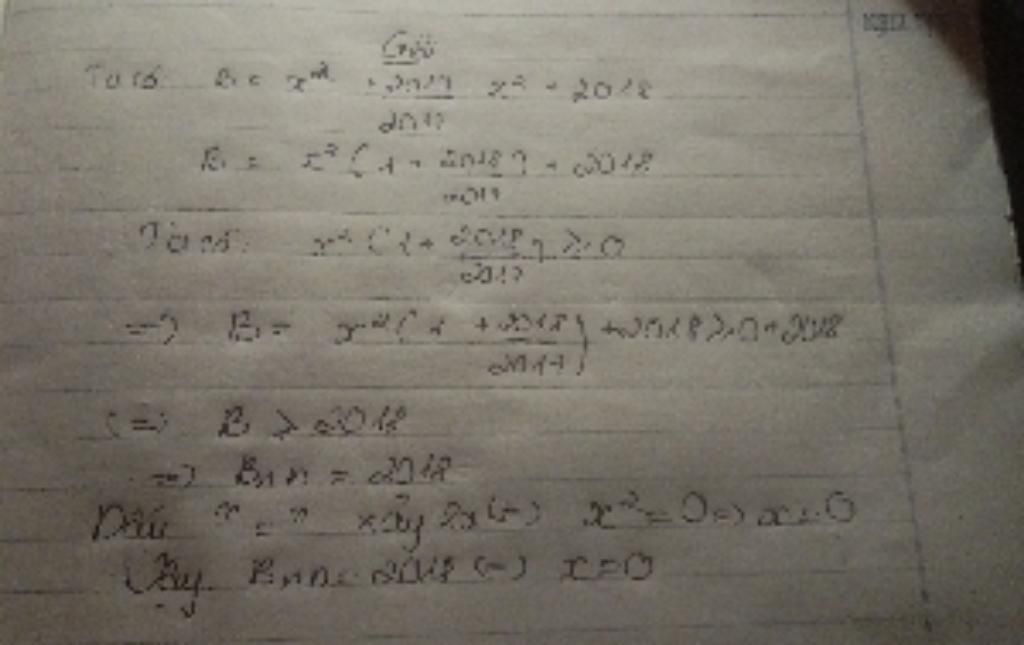 Giải
Ta có: B = x² + 2018/2017 x² + 2018
B = x² (1 + 2018/2017) + 2018
Ta có: x² (1 + 2018/2017) ≥ 0
=> B = x² (1 + 2018/2017) + 2018 ≥ 0 + 2018
<=> B ≥ 2018
=> Bnn = 2018
Dấu "=" xảy ra <=> x² = 0 => x = 0
Vậy Bnn = 2018 <=> x = 0